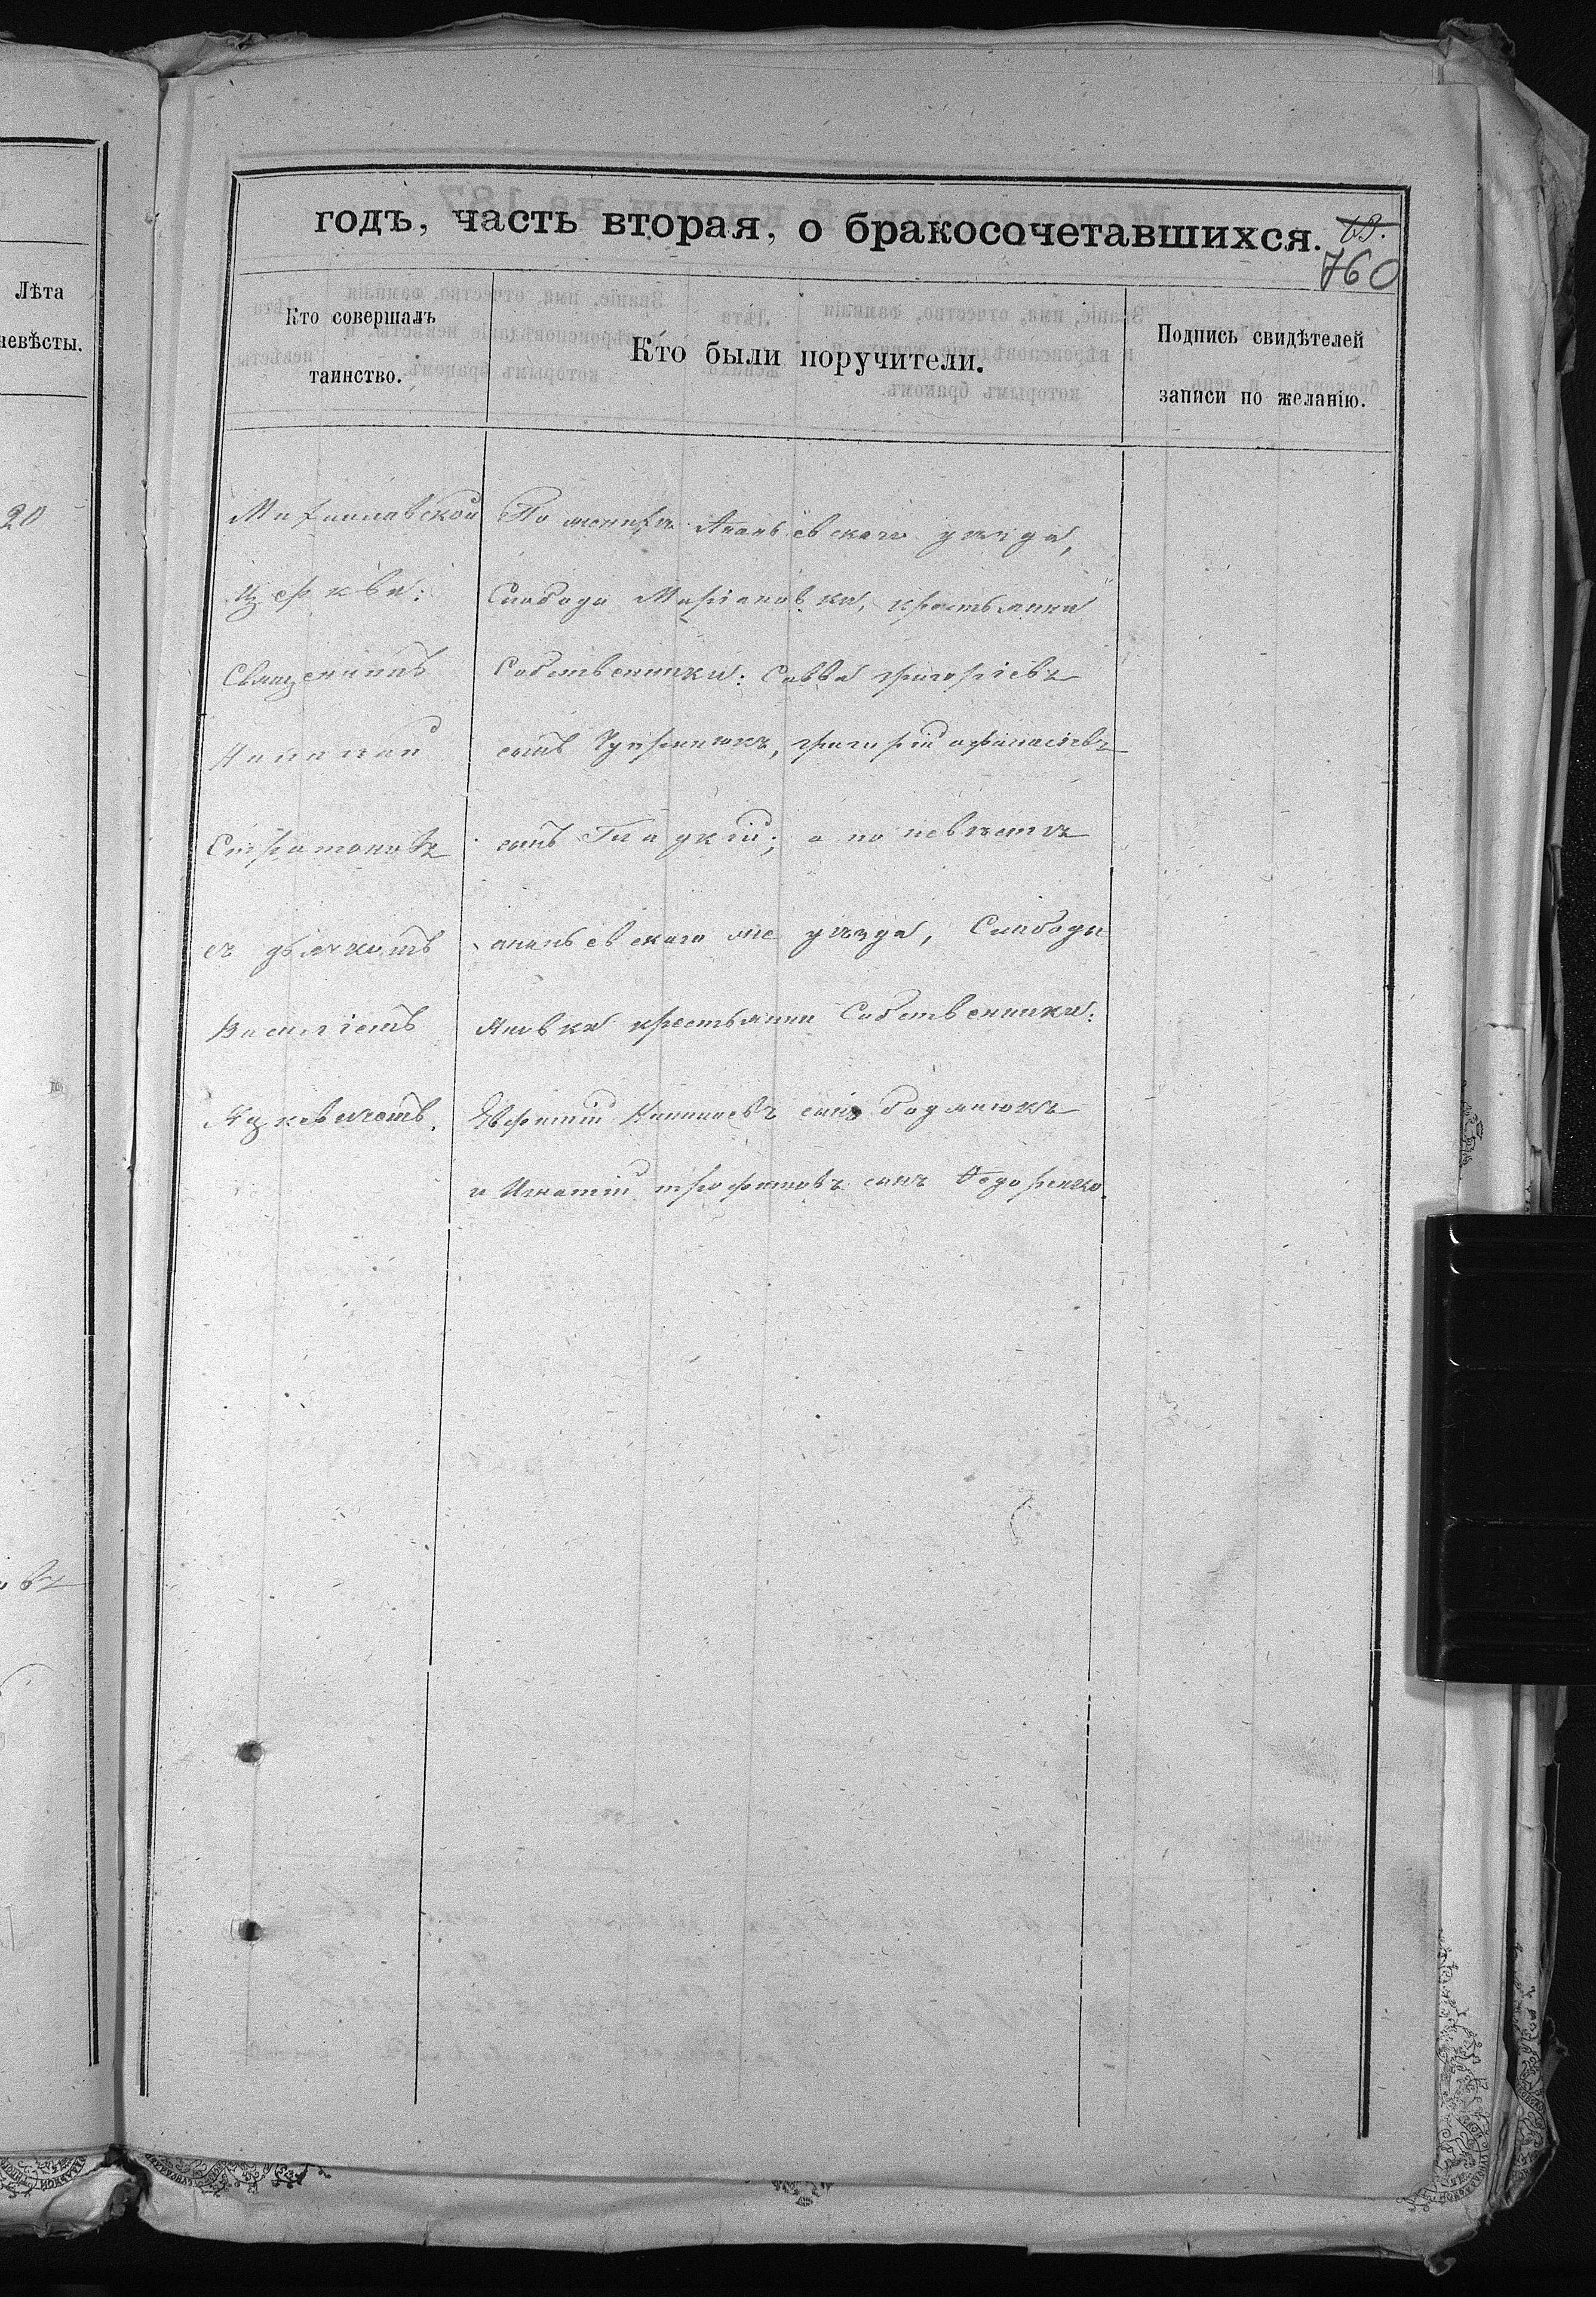 годъ, часть вторая, о бракосочетавшихся.
760
Лѣта
невѣсты.
Кто совершалъ
таинство.
Кто были поручители.
Подпись свидѣтелей
записи по желанію.
20
Михайлавской
церкви:
Священникъ
Николай
Стратоновъ
съ дьячкомъ
Василіемъ
Яцкевичемъ.
По женихѣ Ананьевскаго уѣзда,
Слабоды Маріановки, крестьянѣ
Собственники: Савва григоріевъ
сынъ григорій афанасіевъ
сынъ Гладкій; а по невѣстѣ
ананьевскаго же уѣзда, Слабоды
крестьяни Собственники:
Евфимій сынъ бодянюкъ
и Игнатій трофимовъ сынъ Федоренко.
овъ